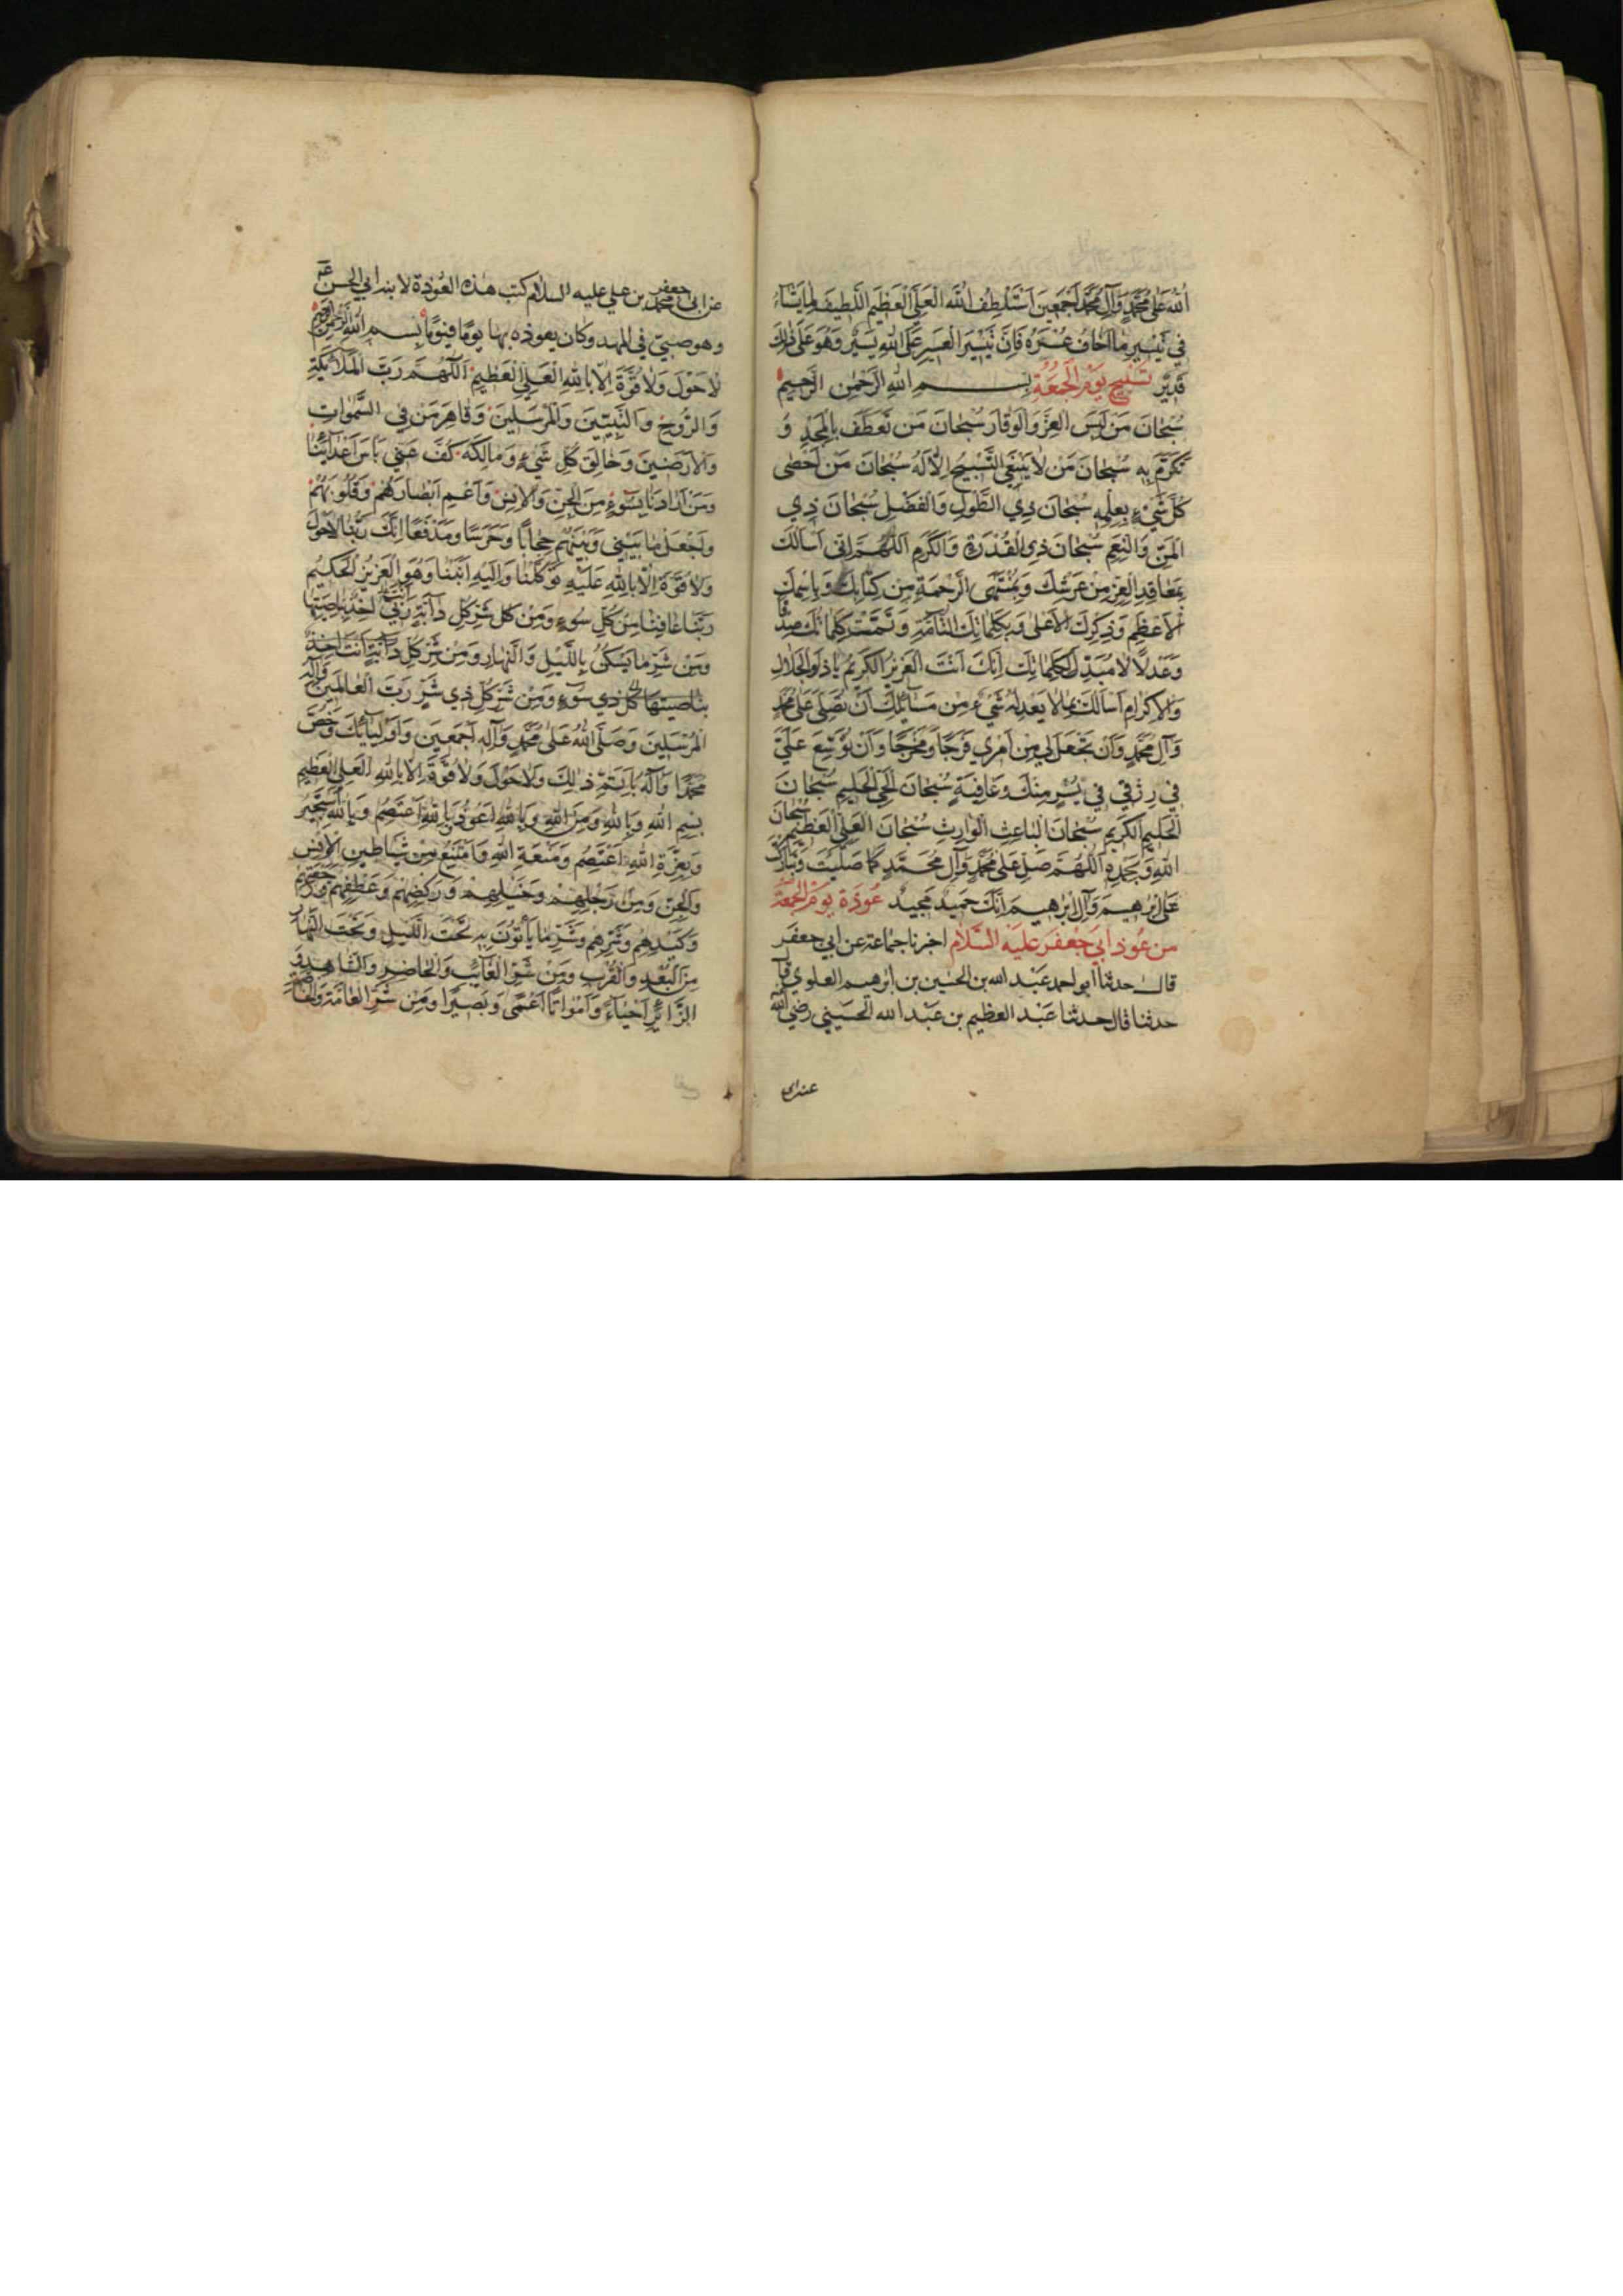 اللهُ عَلىٰ مُحَمَّدٍ وَآلِ مُحَمَّدٍ اَجْمَعِينَ اَسْتَلْطِفُ اللهَ الْعَلِيَّ الْعَظيمَ اللَّطِيفَ لِمٰا يَشٰاءُ
في تَيْسِيرِ مٰا اَخٰافُ عُسْرَهُ فَاِنَّ تَيْسِيرَ الْعَسِيرِ عَلَى اللهِ يَسِيرٌ وَهُوَ عَلىٰ ذٰلِكَ
قَدِيرٌ تَسْبِيحُ يَوْمِ الْجُمُعَةِ بِسْمِ اللهِ الرَّحْمٰنِ الرَّحِيمِ
سُبْحٰانَ مَنْ لَبِسَ الْعِزَّ وَالْوَقٰارَ سُبْحٰانَ مَنْ تَعَطَّفَ بِالْمَجْدِ وَ
تَكَرَّمَ بِهِ سُبْحٰانَ مَنْ لٰا يَنْبَغِي التَّسْبِيحُ اِلّٰا لَهُ سُبْحٰانَ مَنْ اَحْصىٰ
كُلَّ شَيْءٍ بِعِلْمِهِ سُبْحٰانَ ذِي الطَّوْلِ وَالْفَضْلِ سُبْحٰانَ ذِي
الْمَنِّ وَالنِّعَمِ سُبْحٰانَ ذِي الْقُدْرَةِ وَالْكَرَمِ اَللّٰهُمَّ اِنّي اَسْأَلُكَ
بِمَعٰاقِدِ الْعِزِّ مِنْ عَرْشِكَ وَبِمُنْتَهَى الرَّحْمَةِ مِنْ كِتٰابِكَ وَبِاسْمِكَ
الْاَعْظَمِ وَذِكْرِكَ الْاَعْلىٰ وَبِكَلِمٰاتِكَ التّٰامَّةِ وَتَمَّتْ كَلِمٰاتُكَ صِدْقًا
وَعَدْلًا لٰا مُبَدِّلَ لِكَلِمٰاتِكَ اِنَّكَ اَنْتَ الْعَزِيزُ الْكَرِيمُ يٰا ذَا الْجَلٰالِ
وَالْاِكْرٰامِ اَسْأَلُكَ بِمٰا لٰا يَعْدِلُهُ شَيْءٌ مِنْ مَسٰائِلِكَ اَنْ تُصَلِّيَ عَلىٰ مُحَمَّدٍ
وَآلِ مُحَمَّدٍ وَاَنْ تَجْعَلَ لِي مِنْ اَمْرِي فَرَجًا وَمَخْرَجًا وَاَنْ تُوَسِّعَ عَلَيَّ
في رِزْقي في يُسْرٍ مِنْكَ وَعٰافِيَةٍ سُبْحٰانَ الْحَيِّ الْحَلِيمِ سُبْحٰانَ
الْحَلِيمِ الْكَرِيمِ سُبْحٰانَ الْبٰاعِثِ الْوٰارِثِ سُبْحٰانَ الْعَلِيِّ الْعَظِيمِ سُبْحٰانَ
اللهِ وَبِحَمْدِهِ اَللّٰهُمَّ صَلِّ عَلىٰ مُحَمَّدٍ وَآلِ مُحَمَّدٍ كَمٰا صَلَّيْتَ وَبٰارَكْتَ
عَلىٰ اِبْرٰهِيمَ وَآلِ اِبْرٰهِيمَ اِنَّكَ حَمِيدٌ مَجِيدٌ عُوذَةُ يَوْمِ الْجُمُعَةِ
من عُوَذِ ابي جَعْفَر عَلَيْهِ السَّلٰام اخبرنا جماعة عن ابي جعفر
قال حدثنا ابو احمد عبد الله بن الحسين بن ابرهيم العلوي قال
حدثنا قال حدثنا عبد العظيم بن عبد الله الحسيني رضي الله
عن ابي جعفر محمد بن علي عليه السلام كتب هذه العوذة لابنه ابي الحسن
وهو صبيّ في المهد وكان يعوذه بها يومًا فيومًا بِسْمِ اللهِ الرَّحْمٰنِ الرَّحِيمِ
لٰا حَوْلَ وَلٰا قُوَّةَ اِلّٰا بِاللهِ الْعَلِيِّ الْعَظِيمِ اَللّٰهُمَّ رَبَّ الْمَلٰائِكَةِ
وَالرُّوحِ وَالنَّبِيّينَ وَالْمُرْسَلِينَ وَقٰاهِرَ مَنْ فِي السَّمٰوٰاتِ
وَالْاَرَضِينَ وَخٰالِقَ كُلِّ شَيْءٍ وَمٰالِكَهُ كُفَّ عَنّي بَأْسَ اَعْدٰائِنٰا
وَمَنْ اَرٰادَنٰا بِسُوءٍ مِنَ الْجِنِّ وَالْاِنْسِ وَاَعْمِ اَبْصٰارَهُمْ وَقُلُوبَهُمْ
وَاجْعَلْ مٰا بَيْنِي وَبَيْنَهُمْ حِجٰابًا وَحَرَسًا وَمَدْفَعًا اِنَّكَ رَبُّنٰا لٰا حَوْلَ
وَلٰا قُوَّةَ اِلّٰا بِاللهِ عَلَيْهِ تَوَكَّلْنٰا وَاِلَيْهِ اَنَبْنٰا وَهُوَ الْعَزِيزُ الْحَكِيمُ
رَبَّنٰا عٰافِنٰا مِنْ كُلِّ سُوءٍ وَمِنْ كُلِّ شَرِّ كُلِّ دٰابَّةٍ رَبّي آخِذٌ بِنٰاصِيَتِهٰا
وَمِنْ شَرِّ مٰا يَسْكُنُ بِاللَّيْلِ وَالنَّهٰارِ وَمِنْ شَرِّ كُلِّ دٰابَّةٍ اَنْتَ آخِذٌ
بِنٰاصِيَتِهٰا كُلِّ ذِي سُوءٍ وَمِنْ شَرِّ كُلِّ ذِي شَرٍّ رَبَّ الْعٰالَمِينَ وَاِلٰهَ
الْمُرْسَلِينَ وَصَلَّى اللهُ عَلىٰ مُحَمَّدٍ وَآلِهِ اَجْمَعِينَ وَاَوْلِيٰائِكَ وَخُصَّ
مُحَمَّدًا وَآلَهُ بِاَتَمِّ ذٰلِكَ وَلٰا حَوْلَ وَلٰا قُوَّةَ اِلّٰا بِاللهِ الْعَلِيِّ الْعَظِيمِ
بِسْمِ اللهِ وَبِاللهِ وَمِنَ اللهِ وَبِاللهِ اَعُوذُ وَبِاللهِ اَعْتَصِمُ وَبِاللهِ اَسْتَجِيرُ
وَبِعِزَّةِ اللهِ اَعْتَصِمُ وَمَنَعَةِ اللهِ وَاَمْتَنِعُ مِنْ شَيٰاطِينِ الْاِنْسِ
وَالْجِنِّ وَمِنْ رَجِلِهِمْ وَخَيْلِهِمْ وَرَكْضِهِمْ وَعَطْفِهِمْ وَرَجْعَتِهِمْ
وَكَيْدِهِمْ وَشَرِّهِمْ وَشَرِّ مٰا يَأْتُونَ بِهِ تَحْتَ اللَّيْلِ وَتَحْتَ النَّهٰارِ
مِنَ الْبُعْدِ وَالْقُرْبِ وَمِنْ شَرِّ الْغٰائِبِ وَالْحٰاضِرِ وَالشّٰاهِدِ وَ
الزّٰائِرِ اَحْيٰاءً وَاَمْوٰاتًا اَعْمىٰ وَبَصِيرًا وَمِنْ شَرِّ الْعٰامَّةِ وَالْخٰاصَّةِ